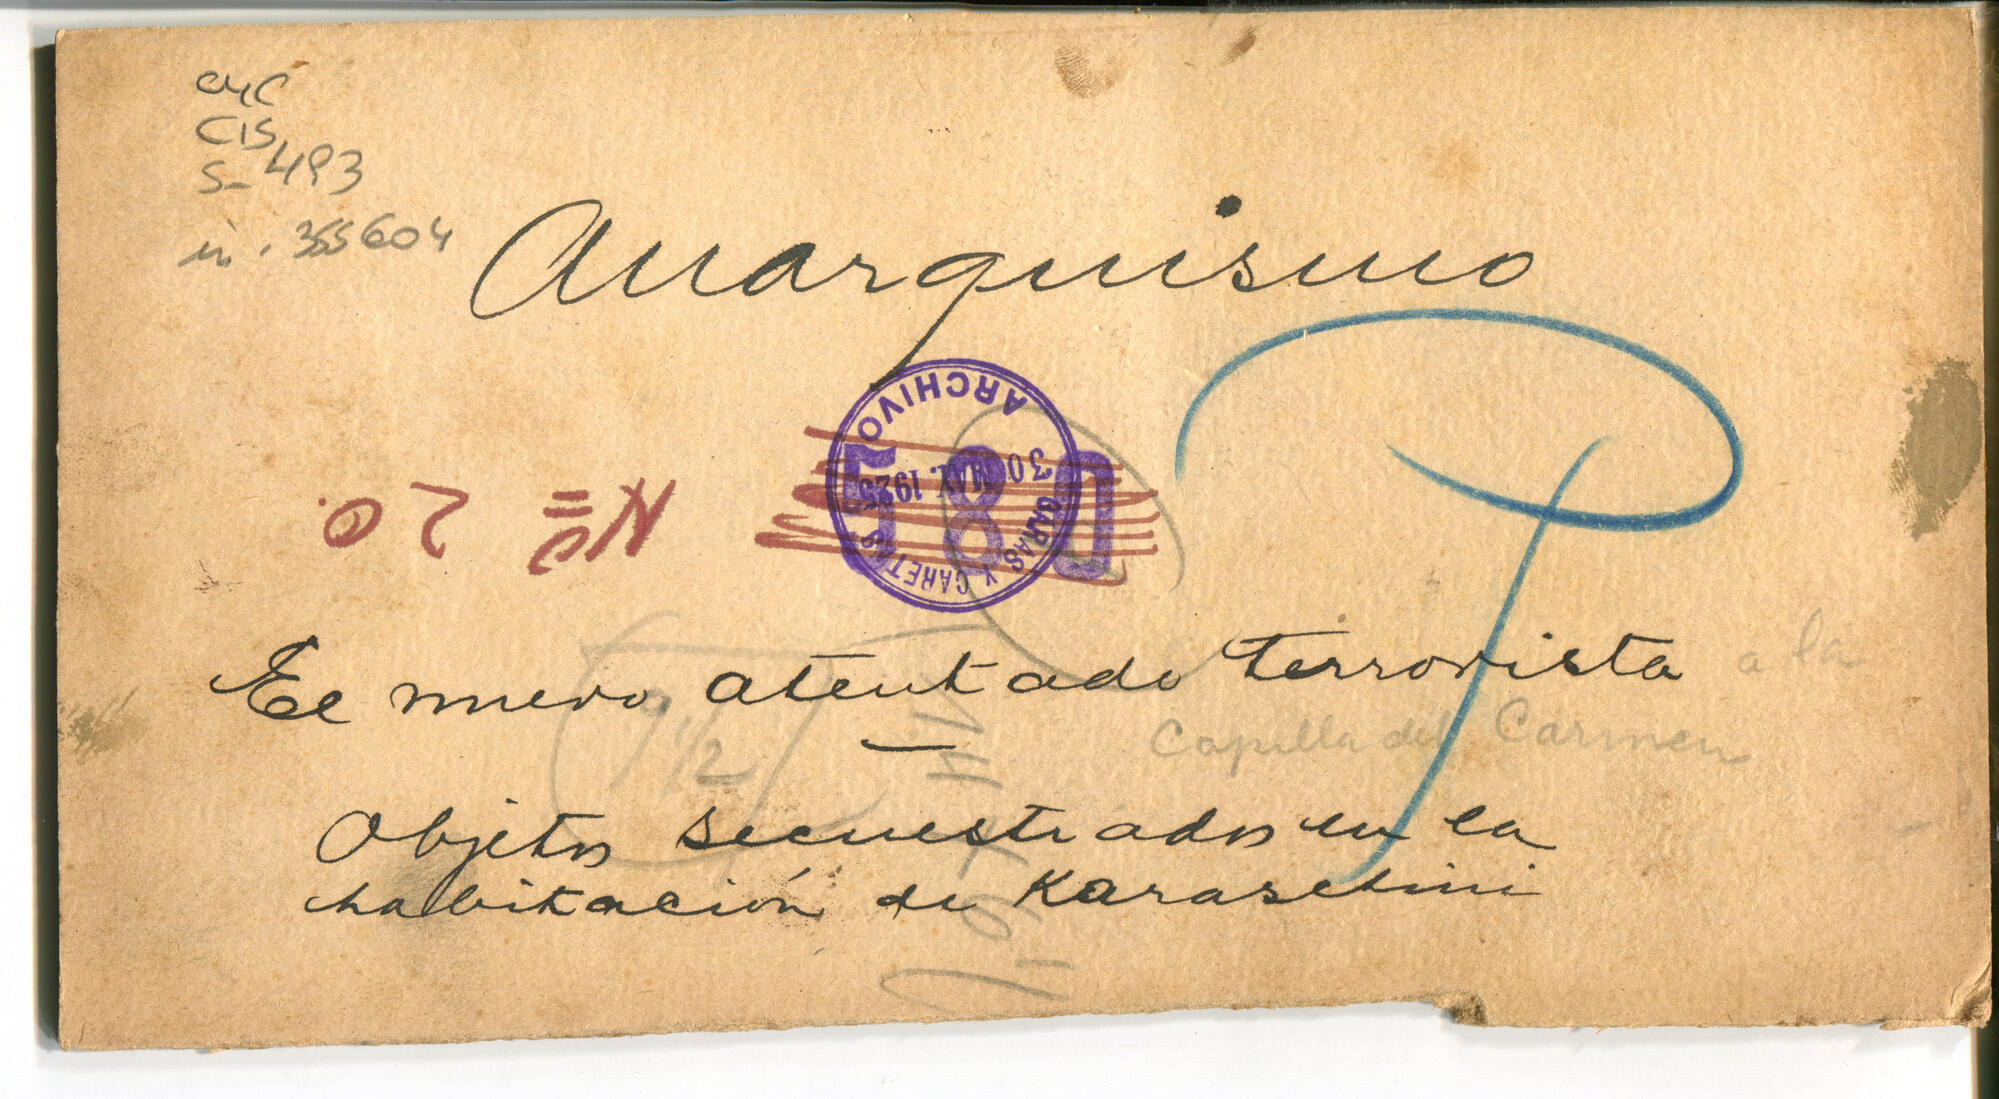 CyC
CIS
S-493
in. 355604
Anarquismo
ARCHIVO
30 MAY. 1925
CARAS Y CARETAS
580
Nº 20.
El nuevo atentado terrorista a la
Capilla del Carmen
9 1/2
Objetos secuestrados en la
habitación de Karaschini